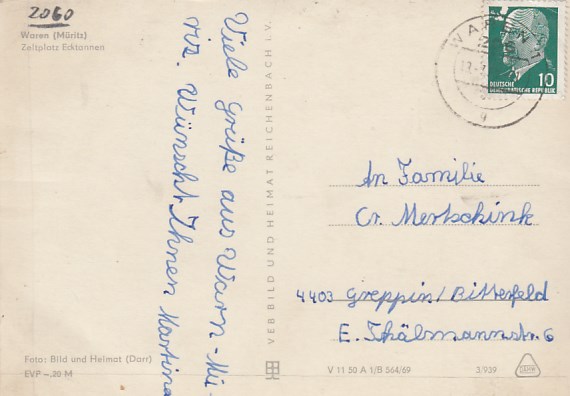 2060
Waren (Müritz)
Zeltplatz Ecktannen
Viele Grüße aus Warn-Mü-
riz. Wünscht Ihnen Martina
VEB BILD UND HEIMAT REICHENBACH i. V.
WAREN
10
DEUTSCHE
DEMOKRATISCHE REPUBLIK
g
An Familie
Cr. Mertschink
4403 Greppin/Bitterfeld
E. Thälmannstr. 6
Foto: Bild und Heimat (Darr)
EVP –.20 M
V 11 50 A 1/B 564/69
3/939